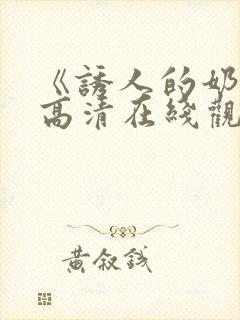 《誘人的奶
高清在綫觀
黄叙錢